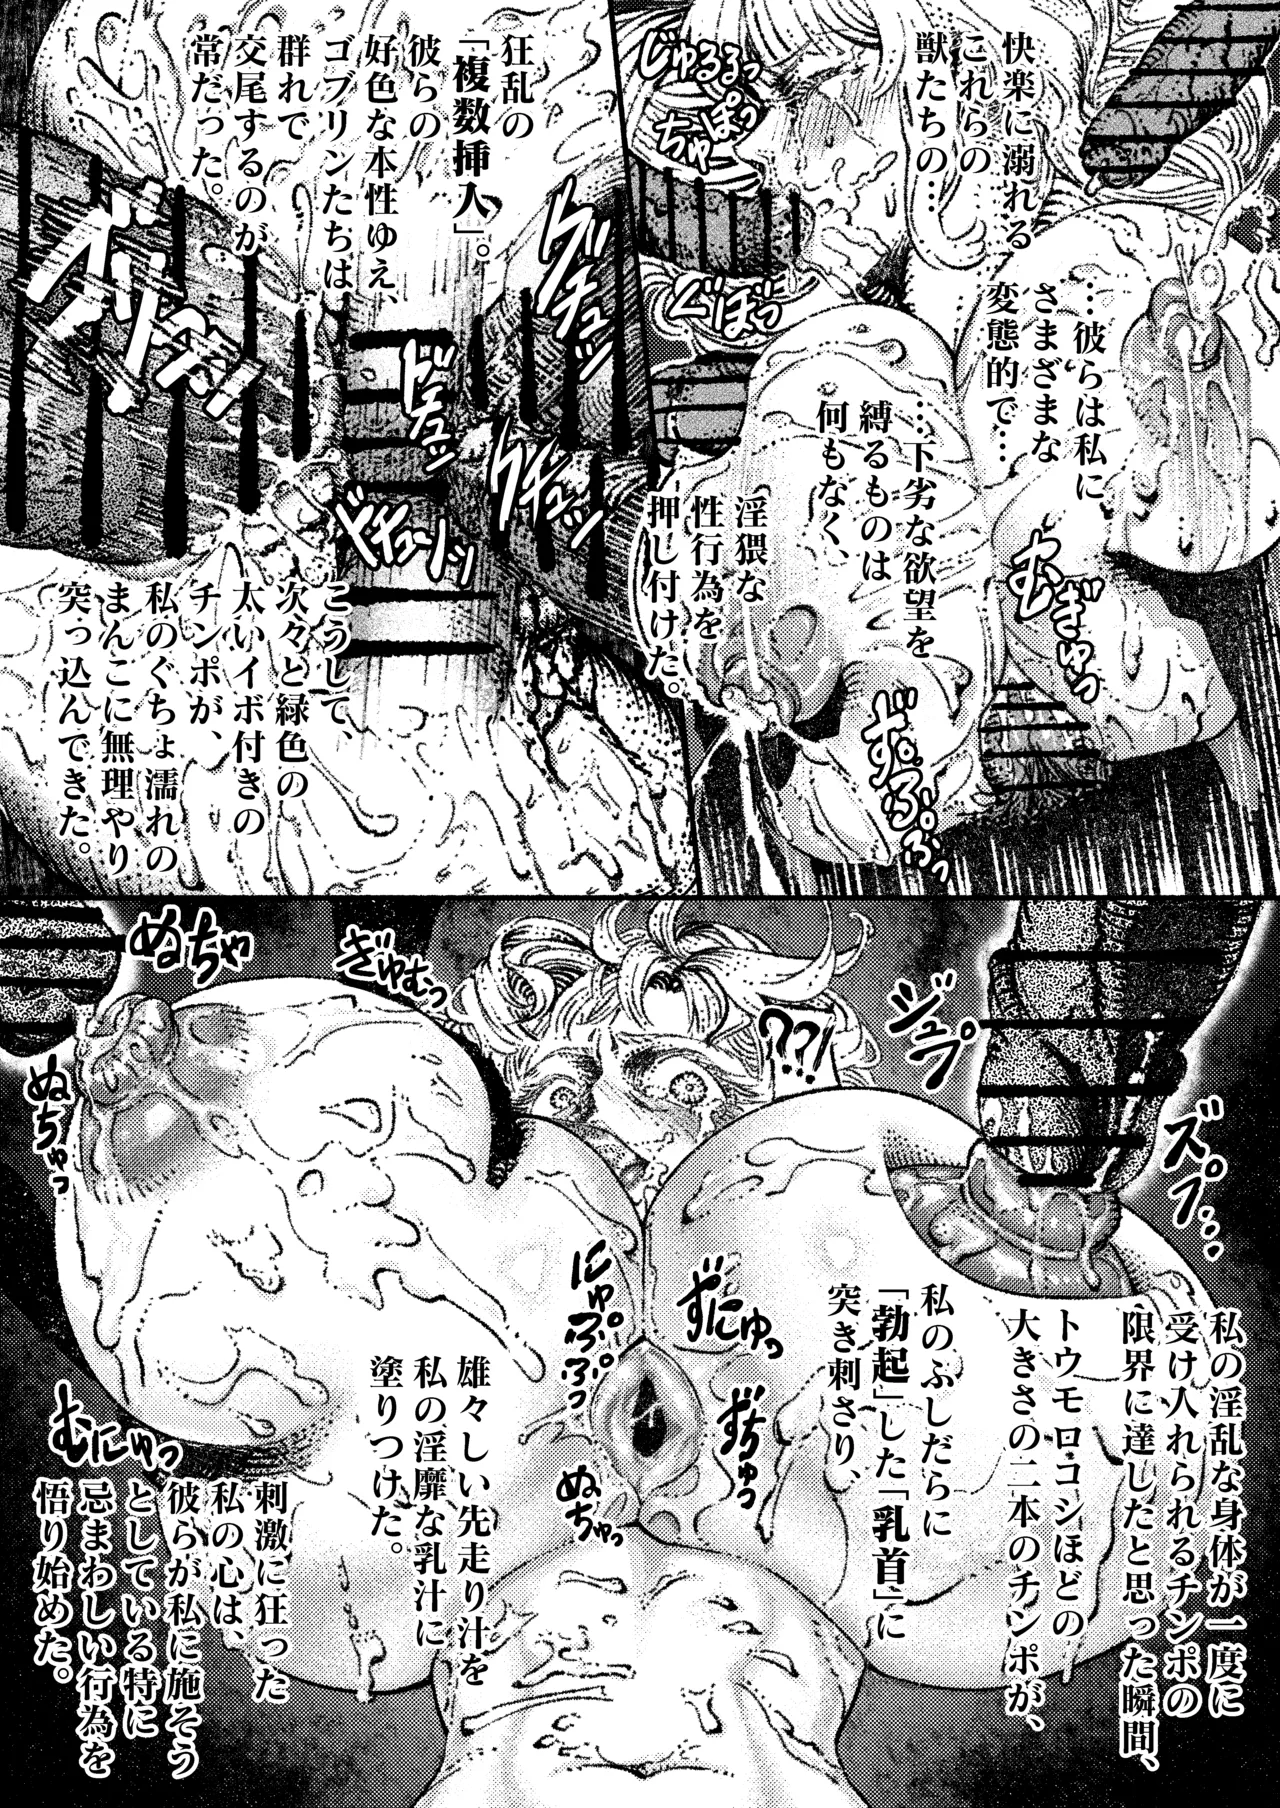 快楽に溺れる
これらの
獣たちの…
…彼らは私に
さまざまな
変態的で…
…下劣な欲望を
縛るものは
何もなく、
淫猥な
性行為を
押し付けた。
じゅるるっ
ちゅぽっ
ぐぽっ
むぎゅっ
ずぷぷっ
狂乱の
「複数挿入」。
彼らの
好色な本性ゆえ、
ゴブリンたちは
群れで
交尾するのが
常だった。
こうして、
次々と緑色の
太いイボ付きの
チンポが、
私のぐちょ濡れの
まんこに無理やり
突っ込んできた。
グチュッ
ドチュッ
クチュッ
ドチューッ
??!
ジュプ
ズプ…
ぬちゃ
ぎゅむっ
ぬちゅっ
私の淫乱な身体が一度に
受け入れられるチンポの
限界に達したと思った瞬間、
トウモロコシほどの
大きさの二本のチンポが、
私のふしだらに
「勃起」した「乳首」に
突き刺さり、
雄々しい先走り汁を
私の淫靡な乳汁に
塗りつけた。
刺激に狂った
私の心は、
彼らが私に施そう
としている特に
忌まわしい行為を
悟り始めた。
ずにゅっ
にゅぷぷっ
ずちゅっ
ぬちゅっ
むにゅっ